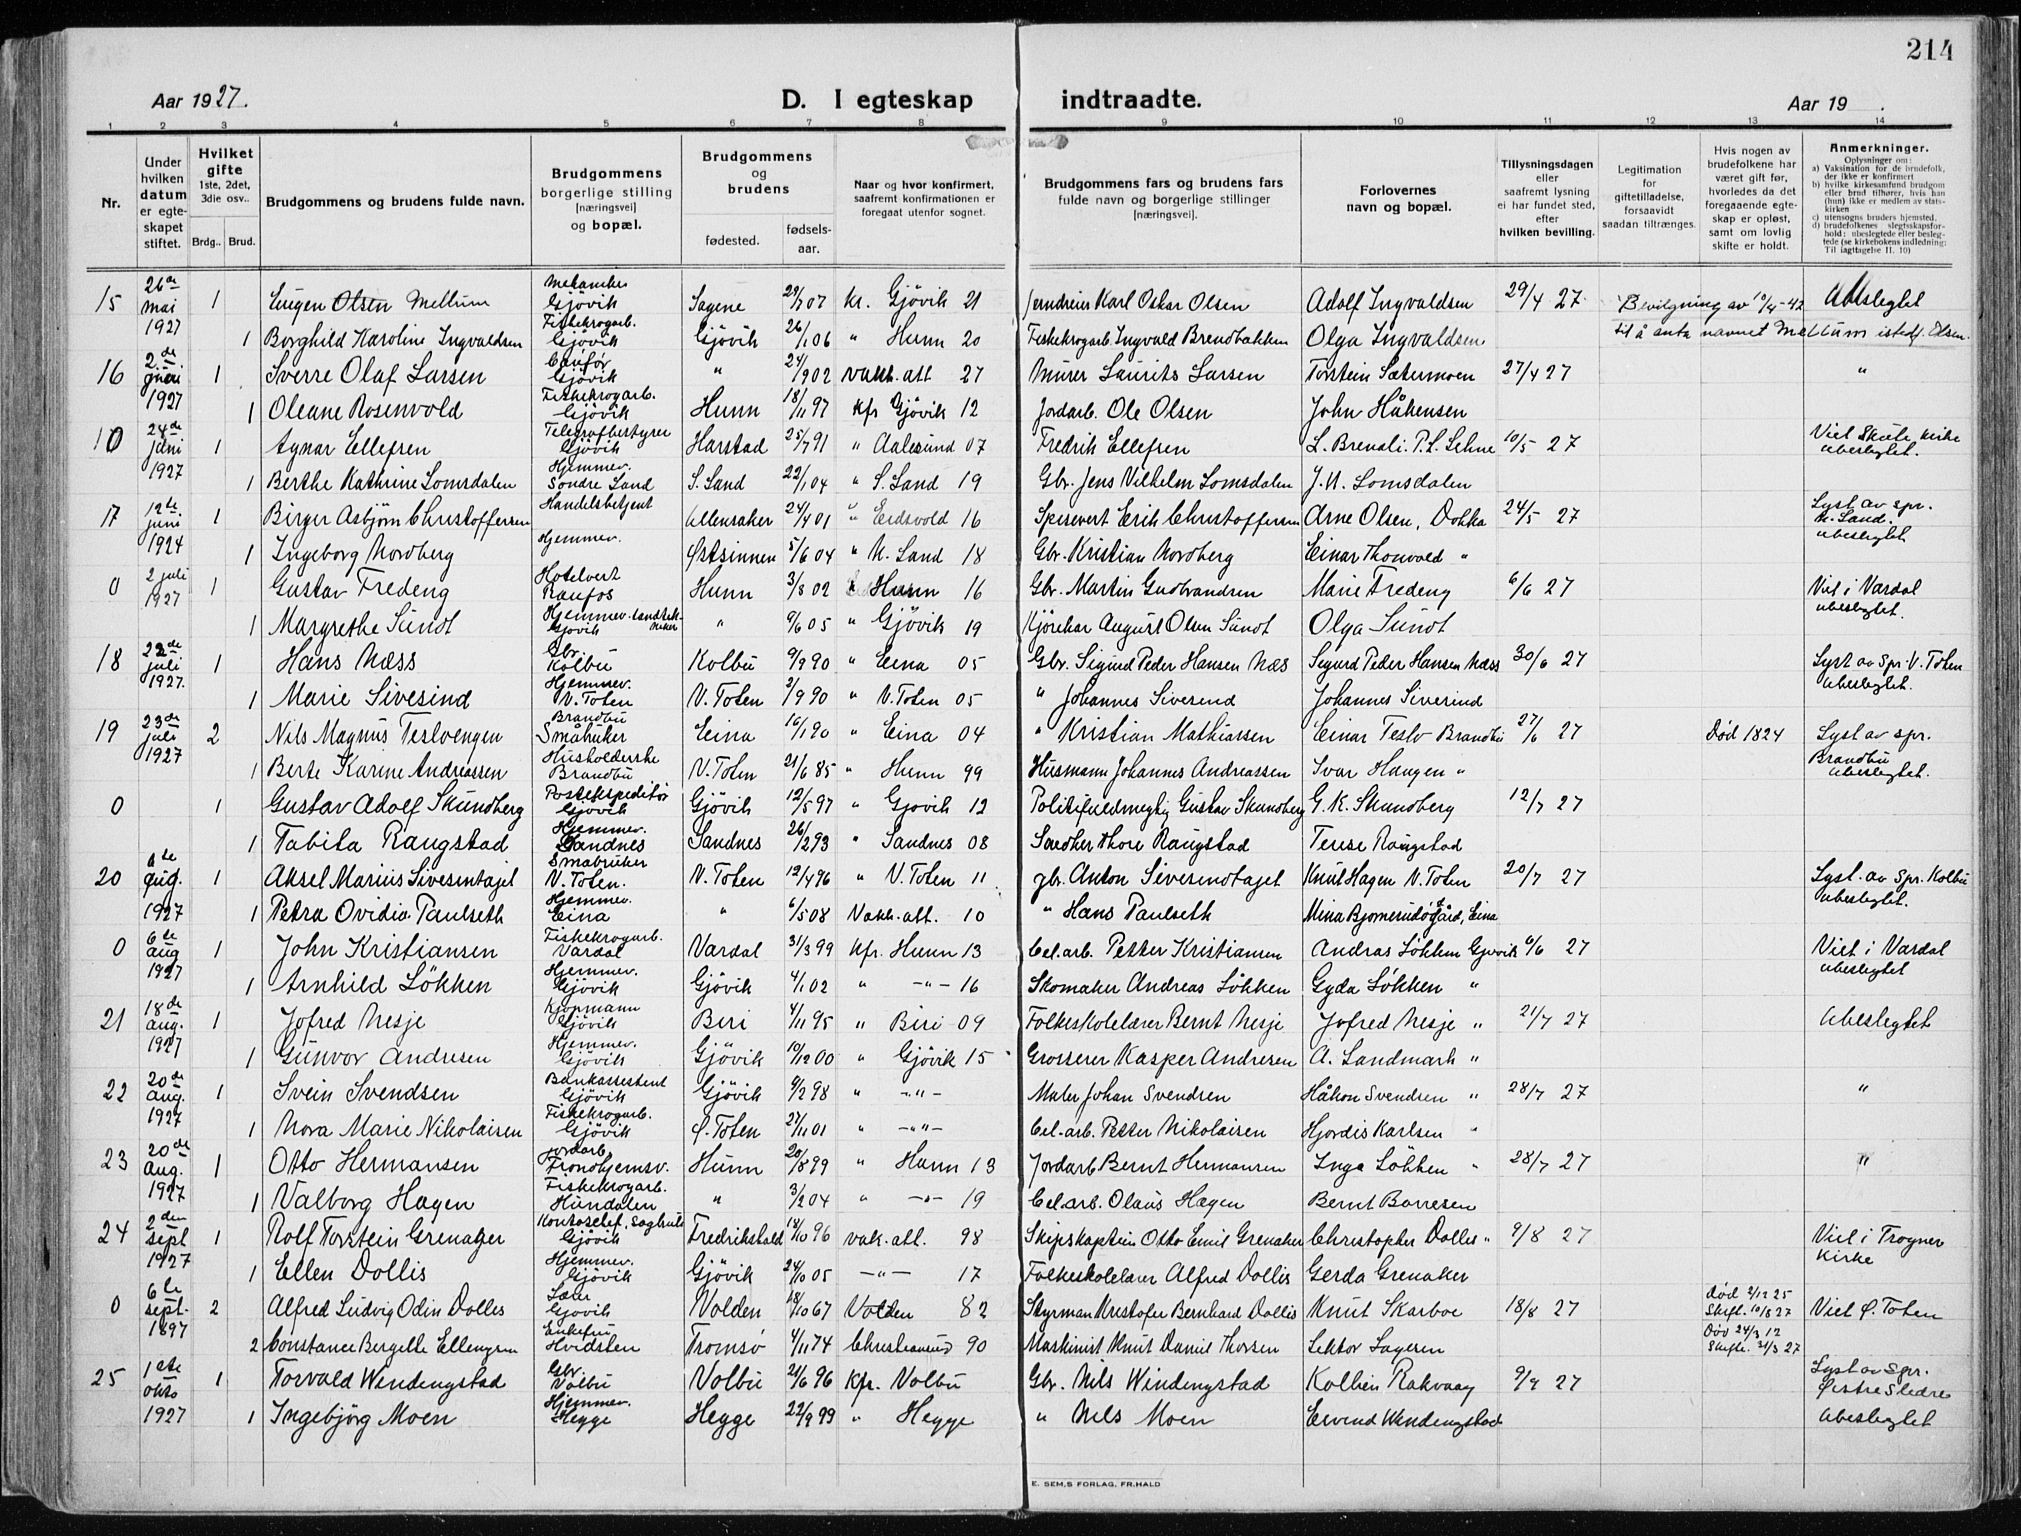 214
Aar 1927.
D. I egteskap indtraadte.
Aar 19 .
1 2 3 4 5 6 7 8 9 10 11 12 13 14
Nr.
Under hvilken datum er egteskapet stiftet.
Hvilket gifte 1ste, 2det, 3die osv..
Brdg.. Brud.
Brudgommens og brudens fulde navn.
Brudgommens borgerlige stilling [næringsvei] og bopæl.
Brudgommens og brudens
fødested. fødselsaar.
Naar og hvor konfirmert, saafremt konfirmationen er foregaat utenfor sognet.
Brudgommens fars og brudens fars fulde navn og borgerlige stillinger [næringsvei].
Forlovernes navn og bopæl.
Tillysningsdagen eller saafremt lysning ei har fundet sted, efter hvilken bevilling.
Legitimation for giftetilladelse, forsaavidt saadan tiltrænges.
Hvis nogen av brudefolkene har været gift før, hvorledes da det foregaaende egteskap er opløst, samt om lovlig skifte er holdt.
Anmerkninger.
Oplysninger om:
a) Vaksination for de brudefolk, der ikke er konfirmert
b) hvilke kirkesamfund brudgom eller brud tilhører, hvis han (hun) ikke er medlem av statskirken
c) utensogns bruders hjemsted.
d) brudefolkenes slegtsskapsforhold: ubeslegtede eller beslegtede (se kirkebokens indledning: Til iagttagelse II. 10)
15 26de mai 1927 1 Eugen Olsen Mellum Gjövik Sagene 29/7 07 kr. Gjövik 21 Karl Oskar Olsen Adolf Ingvaldsen 29/4 27 Bevilgning av 10/4-42 Ubeslegtet
1 Borghild Karoline Ingvaldsen Fiskekrogarb. Gjövik Gjövik 26/1 06 " Hunn 20 Fiskekrogarb. Ingvald Brendbakken Olga Ingvaldsen til å anta navnet Mellum istedf. Olsen.
16 2.de juni 1927 1 Sverre Olaf Larsen Gjövik " 24/9 02 vakk. att 27 Murer Laurits Larsen Torstein Sætermoen 27/4 27 "
1 Oleane Rosenvold Fiskekrogarb. Gjövik Hunn 18/11 97 kfr Gjövik 12 Jordarb. Ole Olsen John Håkensen
10 24de juni 1927 1 Agnar Ellefsen Telegrafbestyrer Gjövik Harstad 25/7 91 " Aalesund 07 Fredrik Ellefsen 10/5 27 Viet Skute kirke ubeslegtet.
1 Berthe Kathrine Lomsdalen Hjemmev. Söndre Land S. Land 22/1 04 " S. Land 19 Gbr. Jens Vilhelm Lomsdalen J.N. Lomsdalen
17 12te juni 1924 1 Birger Asbjörn Christoffersen Handelsbetjent Ullensaker 24/4 01 " Eidsvold 16 Erik Christoffersen Arne Olsen, Dokka 24/5 27 Lyst av spr. N. Land. ubeslegtet
1 Ingeborg Nordberg Hjemmev. Østsinnen 5/6 04 " N. Land 18 Gbr. Kristian Nordberg Einar Thonvold "
0 2 juli 1927 1 Gustav Fredeng Hotelvert Raufos Hunn 3/8 02 Hunn 16 Gbr. Martin Gudbrandsen Marie Fredeng 6/6 27 Viet i Vardal ubeslegtet.
1 Margrethe Sundt Hjemmev. Gjövik " 9/6 05 " Gjövik 19 Kjörekar August Olsen Sundt Olga Sundt
18 22de juli 1927. 1 Hans Næss Gbr. Kolbu Kolbu 9/9 90 " Eina 05 Gbr. Sigurd Peder Hansen Næs Sigurd Peder Hansen Næss 30/6 27 Lyst av Spr. V. Toten ubeslegtet.
1 Marie Sivesind Hjemmev. V. Toten V. Toten 2/9 90 " V. Toten 05 " Johannes Sivesind Johannes Sivesind
19 23de juli 1927 2 Nils Magnus Teslvengen Brandbu Småbruker Eina 16/1 90 " Eina 04 " Kristian Mathiassen Einar Teslo Brandbu 27/6 27 Död 1824 Lyst av spr. Brandbu ubeslegtet.
1 Berte Karine Andreassen Husholderske Brandbu V. Toten 21/6 85 " Hunn 99 Husmann Johannes Andreassen Ivar Haugen "
0 1 Gustav Adolf Skundberg Postekspeditör Gjövik Gjövik 12/5 97 " Gjövik 12 Politifuldmegtig Gustav Skundberg G.K. Skundberg 12/7 27
1 Tabita Raugstad Hjemmev. Sandnes Sandnes 26/2 93 " Sandnes 08 Thore Raugstad Terese Raugstad
20 6te aug. 1927 1 Aksel Marius Sivesintajet Småbruker V. Toten. V. Toten 12/4 96 " V. Toten 11 gbr. Anton Sivesindtajet Knut Hagen V. Toten 20/7 27 Lyst. av Spr. Kolbu ubeslegtet.
1 Petra Ovidia Paulseth Hjemmev. Eina " 6/5 08 Vakk. att. 10 " Hans Paulseth Mina Bjørnerudgård, Eina
0 6te aug 1927 1 John Kristiansen Fiskekrogarb. Vardal Vardal 31/3 99 kfr. Hunn 13 Cel.arb. Petter Kristiansen Andras Løkken Gjøvik 6/6 27 Viet i Vardal ubeslegtet
1 Arnhild Løkken Hjemmev. Gjövik Gjövik 4/1 02 " -"- 16 Skomaker Andreas Løkken Gyda Løkken "
21 18de aug. 1927 1 Jofred Nesje Kjøpmann Gjövik Biri 4/11 95 " Biri 09 Folkeskolelærer Bernt Nesje Jofred Nesje " 21/7 27 Ubeslegtet
1 Gunvor Andresen Hjemmev. Gjövik Gjövik 10/12 00 " Gjövik 15 Grosserer Kasper Andresen A. Landmark "
22 20de aug. 1927 1 Svein Svendsen Bankassistent Gjövik Gjövik 9/2 98 " -"- Maler Johan Svendsen Håkon Svendsen " 28/7 27 "
1 Nora Marie Nikolaisen Fiskekrogarb. Gjövik Ø. Toten 27/11 01 " -"- Cel.arb. Petter Nikolaisen Hjordis Karlsen "
23 20de aug. 1927 1 Otto Hermansen Jordarb. Trondhjemsv. Hunn 20/8 99 " Hunn 13 Jordarb Bernt Hermansen Inga Løkken " 28/7 27 "
1 Valborg Hagen Fiskekrogarb. Hundalen " 3/2 04 " -"- 19 Cel.arb. Olaus Hagen Bernt Borresen
24 2den sept 1927 1 Rolf Torstein Grenager Gjövik Fredrikshald 18/10 96 vak. att. 98 Skipskaptein Otto Emil Grenaker Christopher Dollis " 9/8 27 Viet i Trogner Kirke
1 Ellen Dollis Hjemmev. Gjövik Gjövik 24/10 05 -"- 17 Folkeskolelærer Alfred Dollis Gerda Grenaker
0 6te sept. 1897 2 Alfred Ludvig Odin Dolles Lær Gjövik Volden 18/10 67 Volden 82 Styrman Kristofer Bernhard Dollis Knut Skarboe 18/8 27 död 2/12 25 Skift. 10/8 27 Viet Ø. Toten
2 Constance Bergette Ellengsen Enkefru Hvidsten Tromsø 4/11 74 Christiansund 90 Maskinist Knut Daniel Thorsen Lektor Lagesen Döv 24/3 12 Skifte. 31/3 27
25 1ste okto 1927 1 Torvald Windengstad Gbr. Volbu Volbu 21/6 96 kfr. Volbu Gbr. Nils Windengstad Kolbein Rakvaag 9/9 27 Lyst av Spr. Østre Slidre
1 Ingebjörg Moen Hjemmev. Hegge Hegge 22/9 99 " Hegge " Nils Moen Eivind Windengstad Ubeslegtet
E. SEM,S FORLAG, FR.HALD